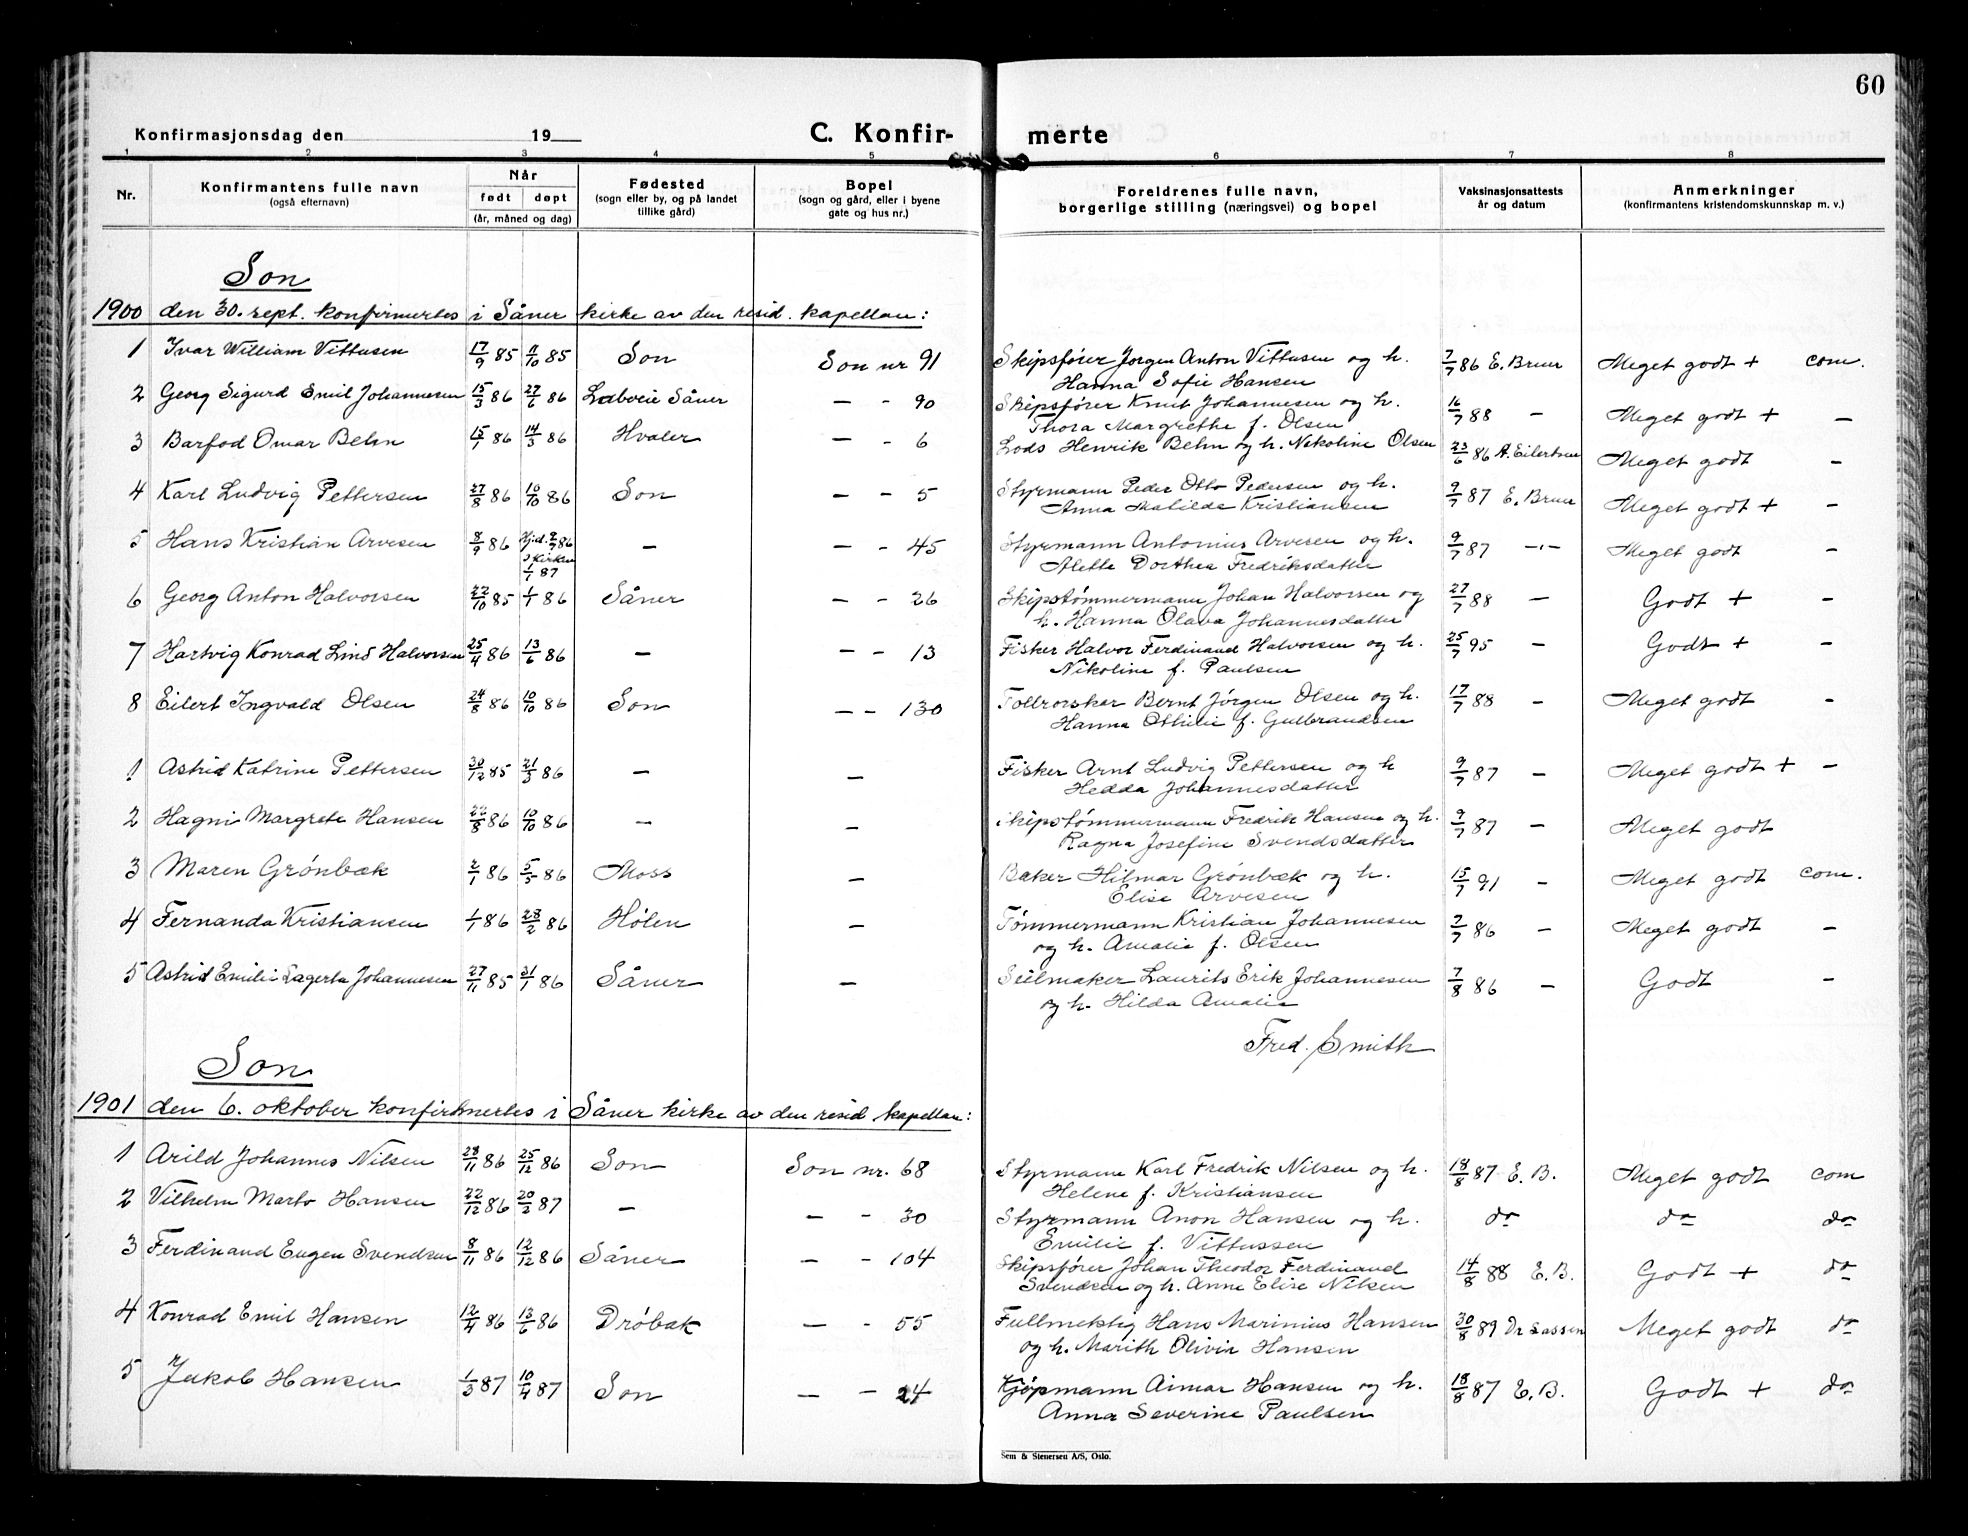 60
Konfirmasjonsdag den 19 C. Konfir- merte
1 2 3 4 5 6 7 8
Nr. Konfirmantens fulle navn (også efternavn) Når født døpt (år, måned og dag) Fødested (sogn eller by, og på landet tillike gård) Bopel (sogn og gård, eller i byene gate og hus nr.) Foreldrenes fulle navn, borgerlige stilling (næringsvei) og bopel Vaksinasjonsattests år og datum Anmerkninger (konfirmantens kristendomskunnskap m. v.)
Son
1900 den 30. sept. konfirmertes i Såner kirke av den resid. kapellan:
1 Ivar William Vittusen 17/9 85 11/10 85 Son Son nr 91 Skipsfører Jørgen Anton Vittusen og h. 7/7 86 E. Bruur Meget godt + com.
Hanna Sofie Hansen
2 Georg Sigurd Emil Johannesen 15/3 86 27/6 86 Labveie Såner — - 90 Skipsfører Knut Johannesen og h. 16/7 88 — Meget godt + —
Thora Margrethe f. Olsen
3 Barfod Omar Behn 15/1 86 14/3 86 Hvaler — - 6 Lods Henrik Behn og h. Nekoline Olsen 23/6 86 A. Eilertsen Meget godt —
4 Karl Ludvig Pettersen 27/8 86 10/10 86 Son — - 5 Styrmann Peder Otto Pedersen og h. 9/7 87 E. Bruur Meget godt + —
Anna Matilde Kristiansen
5 Hans Kristian Arvesen 8/9 86 Hj.d. 2/9 86 — — - 45 Styrmann Antonius Arvesen og h. 9/7 87 —"— Meget godt —
i kirken 1/1 87 Alette Dorthea Fredriksdatter
6 Georg Anton Halvorsen 22/10 85 1/1 86 Såner — - 26 Skipstømmermann Johan Halvorsen og 27/7 88 — Godt + —
h. Hanna Olava Johannesdatter
7 Hartvig Konrad Lind Halvorsen 25/4 86 13/6 86 — — - 13 Fisker Halvor Ferdinand Halvorsen og h. 25/7 95 — Godt + —
Nikoline f. Paulsen
8 Eilert Ingvald Olsen 24/8 86 10/10 86 Son — - 130 Tollrorskar Bernt Jørgen Olsen og h. 17/7 88 — Meget godt —
Hanna Othilie f. Gulbrandsen
1 Astrid Katrine Pettersen 30/12 85 21/3 86 — — Fisker Arnt Ludvig Pettersen og h 9/7 87 — Meget godt + —
Hedda Johannesdatter
2 Hagni Margrete Hansen 22/8 86 10/10 86 — — skipstømmermann Fredrik Hansen og h. 9/7 87 — Meget godt
Ragna Josefine Svendsdatter
3 Maren Grønbæk 2/1 86 5/5 86 Moss — Baker Hilmar Grønbæk og h. 15/7 91 — Meget godt com.
Elise Arvesen
4 Fernanda Kristiansen 1/1 86 28/2 86 Hølen — Tømmermann Kristian Johannesen 7/7 86 — Meget godt —
og h. Amalie f. Olsen
5 Astrid Emilie Lagerta Johannesen 27/11 85 31/1 86 Såner — Seilmaker Laurits Erik Johannesen 7/8 86 — Godt —
og h. Hilda Amalie
Fred. Smith
Son
1901 den 6. oktober konfirmertes i Såner kirke av den resid kapellan:
1 Arild Johannes Nilsen 28/11 86 25/12 86 Son Son nr. 68 Styrmann Karl Fredrik Nilsen og h. 18/8 87 E. B. Meget godt com
Helene f. Kristiansen
2 Vilhelm Marto Hansen 22/12 86 20/2 87 — — - 30 Styrmann Anon Hansen og h. do do do
Emilie f. Vittussen
3 Ferdinand Eugen Svendsen 8/11 86 12/12 86 Såner — - 104 Skipsfører Johan Theodor Ferdinand 14/8 88 E.B. Godt + do
Svendsen og h. Anne Elise Nilsen
4 Konrad Emil Hansen 12/4 86 13/6 86 Drøbak — - 55 Fullmektig Hans Marinius Hansen 30/8 89 Dr Sassen Meget godt do
og h. Marith Olivia Hansen
5 Jakob Hansen 1/3 87 10/4 87 Son — - 24 Kjøpmann Aimar Hansen og h. 18/8 87 E. B. Godt + do
Anna Severine Paulsen
Sem & Stenersen A/S, Oslo.